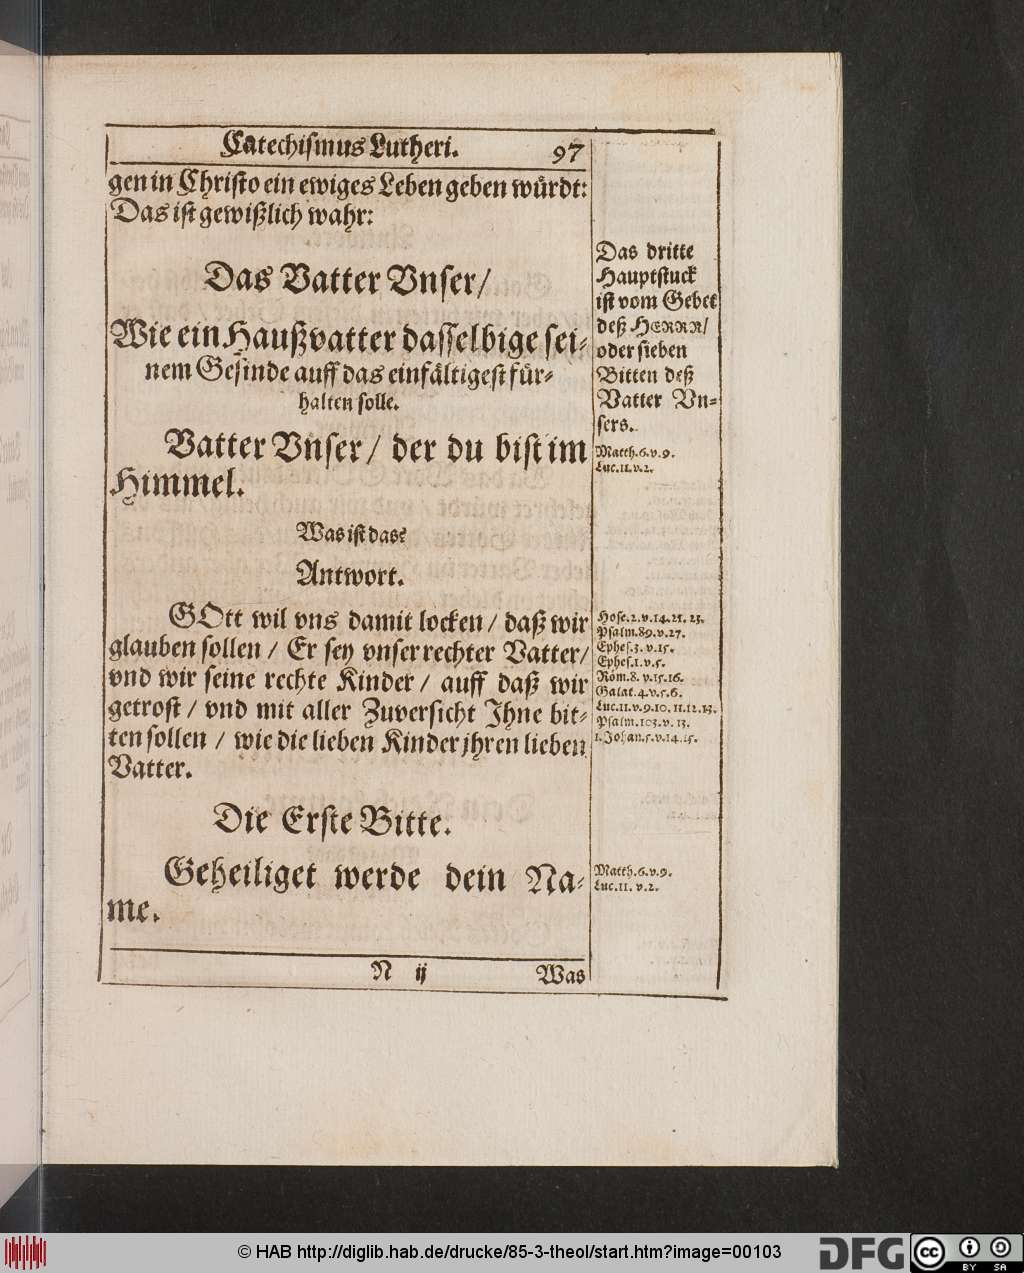 Catechismus Lutheri. 97
gen in Christo ein ewiges Leben geben würdt:
Das ist gewißlich wahr:
Das Vatter Vnser/
Wie ein Haußvatter dasselbige sei-
nem Gesinde auff das einfältigest für-
halten solle.
Vatter Vnser / der du bist im
Himmel.
Was ist das?
Antwort.
GOtt wil vns damit locken / daß wir
glauben sollen / Er sey vnser rechter Vatter/
vnd wir seine rechte Kinder / auff daß wir
getrost / vnd mit aller Zuversicht Ihne bit-
ten sollen / wie die lieben Kinder jhren lieben
Vatter.
Die Erste Bitte.
Geheiliget werde dein Na-
me.
N ij Was
Das dritte
Hauptstuck
ist vom Gebet
deß HERRN/
oder sieben
Bitten deß
Vatter Vn-
sers.
Matth.6.v.9.
Luc.11.v.2.
Hose.2.v.14.21.23.
Psalm.89.v.27.
Ephes.3.v.15.
Ephes.1.v.5.
Röm.8.v.15.16.
Galat.4.v.5.6.
Luc.11.v.9.10.11.12.13.
Psalm.103.v.13.
1.Johan.5.v.14.15.
Matth.6.v.9.
Luc.11.v.2.
© HAB http://diglib.hab.de/drucke/85-3-theol/start.htm?image=00103
DFG
cc BY SA